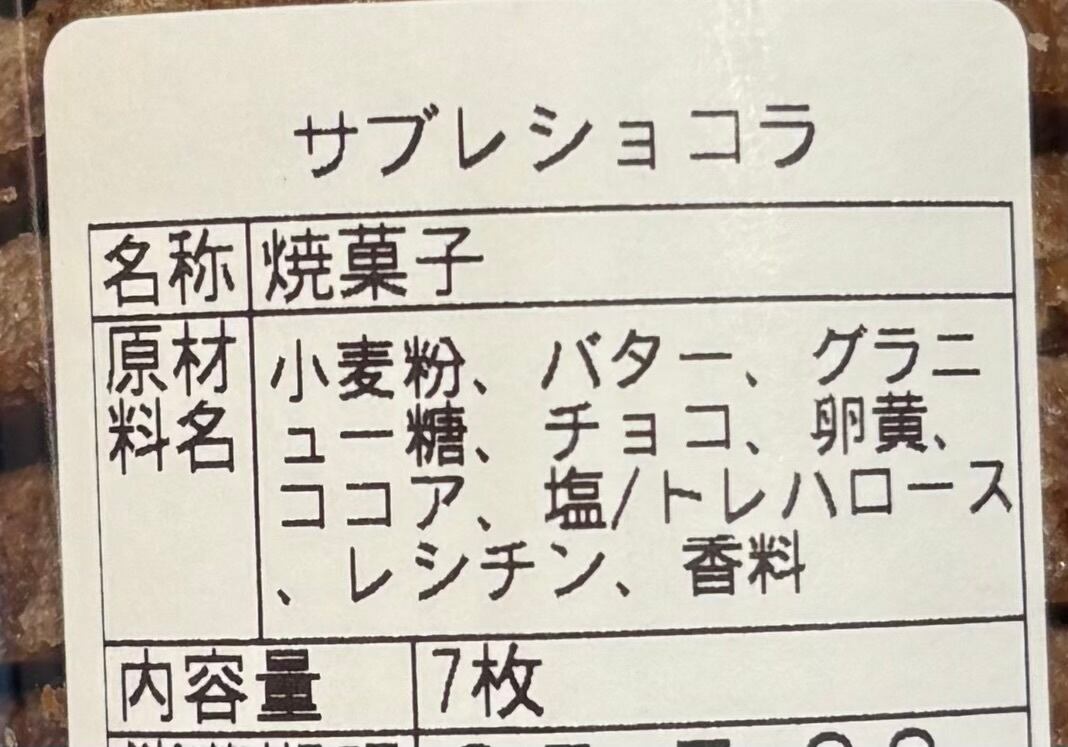 サブレショコラ
名称 焼菓子
原材料名 小麦粉、バター、グラニ
ュー糖、チョコ、卵黄、
ココア、塩/トレハロース
、レシチン、香料
内容量 7枚